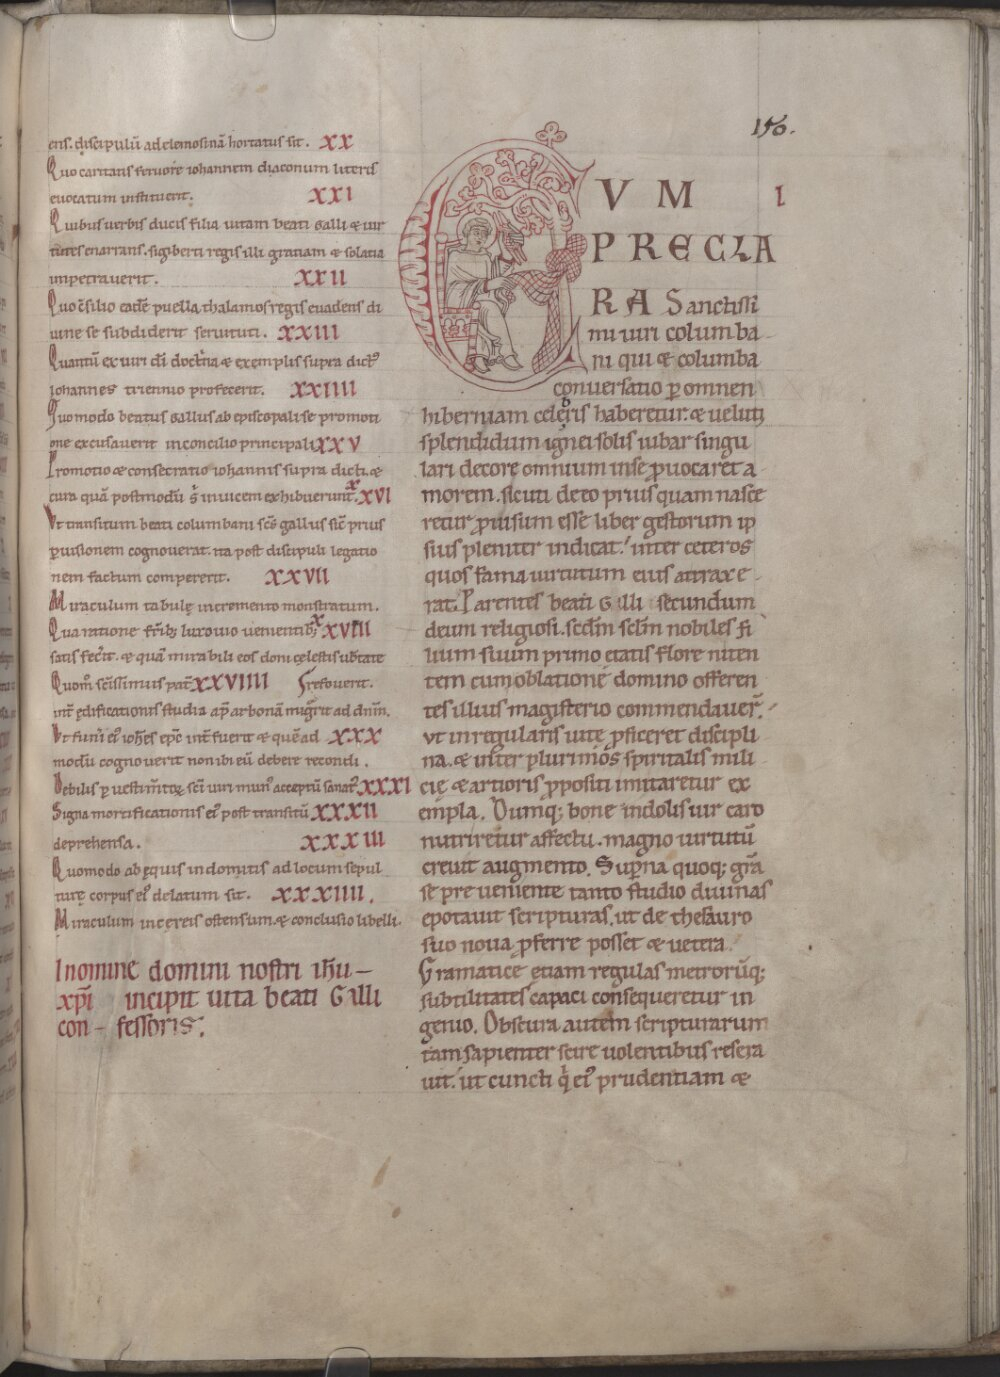 150.
ens. discipulū ad elemosinā hortatus sit. XX
Quo caritatis feruore iohannem diaconum litteris
euocatum instituerit. XXI
Quibus uerbis ducis filia uitam beati Galli & uir
tutes enarrans. sigiberti regis illi gratiam & solatia
impetrauerit. XXII
Quo c̄silio eadē puella thalamos regis euadens di
uine se subdiderit seruituti. XXIII
Quantū ex uiri dī doct̄na & exemplis supra dict᾽
iohannes triennio profecerit. XXIIII
Quomodo beatus Gallus ab episcopali se promoti
one excusauerit in concilio principali XXV
Promotio & consecratio iohannis supra dicti. &
cura quā postmodū s̄ inuicem exhibuerunt. XXVI
Vt transitum beati columbani sc̄s gallus sic̄ prius
p uisionem cognouerat. ita post discipuli legatio
nem factum compererit. XXVII
Miraculum tabulę incremento monstratum.
Qua ratione fr̄ib; luxouio uenientib; XXVIII
satis fecit. & quā mirabili eos doni cęlestis ub̄tate
Quom̄ sc̄issimus pat̄ XXVIIII refouerit.
int̄ edificationis studia ap̄ arbonā miḡrit ad dn̄m.
Vt funi ei᾽ ioh̄es ep̄c int̄fuerit & quē ad XXX
modū cognouerit non ibi eū debere recondi.
Debilis p uestim̄tū sc̄i uiri mun᾽ acceptū sanat᾽ XXXI
Signa mortificationis ei᾽ post transitū XXXII
deprehensa. XXXIII
Quomodo ab equis indomitis ad locum sepul
turę corpus ei᾽ delatum sit. XXXIIII.
Miraculum in cereis ostensum. & conclusio libelli.
In nomine domini nostri ih̄u
xp̄i incipit uita beati Galli
con fessoris.
CVM I
PRECLA
RA Sanctissi
mi uiri columba
ni qui & columba
conuersatio p omnem
hiberniam celebris haberetur. & ueluti
splendidum ignei solis iubar singu
lari decore omnium in se puocaret a
morem. sicuti de eo prius quam nasce
retur puisum esse liber gestorum ip
sius pleniter indicat. inter ceteros
quos fama uirtutum eius attraxe
rat. Parentes beati Galli secundum
deum religiosi. sedm̄ sclm̄ nobiles fi
lium suum primo etatis flore niten
tem cum oblatione domino offeren
tes illius magisterio commendauer̄.
vt in regularis uite pficeret discipli
na. & inter plurimos spiritalis mili
cię & artioris ppositi imitaretur ex
empla. Dumq; bone indolis uir caro
nutriretur affectu. magno uirtutū
creuit augmento. Supna quoq; gr̄a
se pre ueniente tanto studio diuinas
epotauit scripturas. ut de thesauro
suo noua pferre posset & uetera.
Gramatice etiam regulas metrorūq;
subtilitates capaci consequeretur in
genio. Obscura autem scripturarum
tam sapienter scire uolentibus resera
uit. ut cuncti q̄ ei᾽ prudentiam &